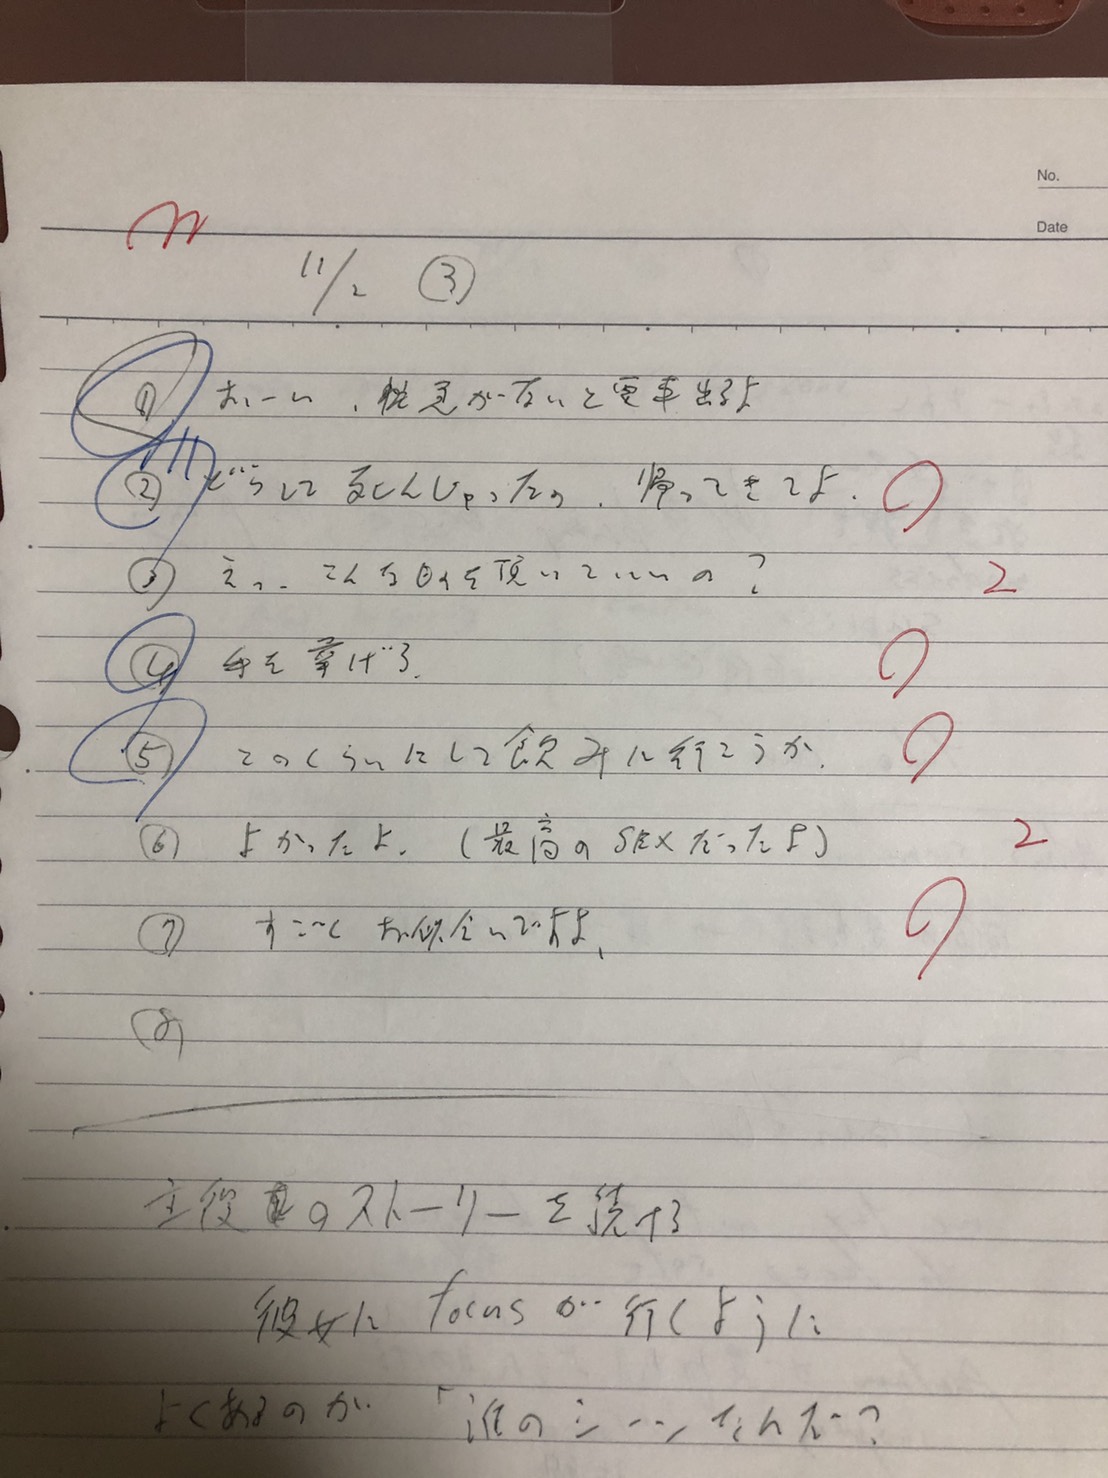 No.
Date
11/2 ③
① おーい、急がないと電車出るよ
② どうして死んじゃったの、帰ってきてよ.
③ えっ、こんな日々を頂いていいの? 2
④ 手を挙げろ.
⑤ このくらいにして飲みに行こうか.
⑥ よかったよ. (最高のSEXだったよ) 2
⑦ すごくお似合いですよ、
⑧
主役のストーリーを続ける
彼女に focus が行くように
よくあるのが 「誰のシーンなんだ?